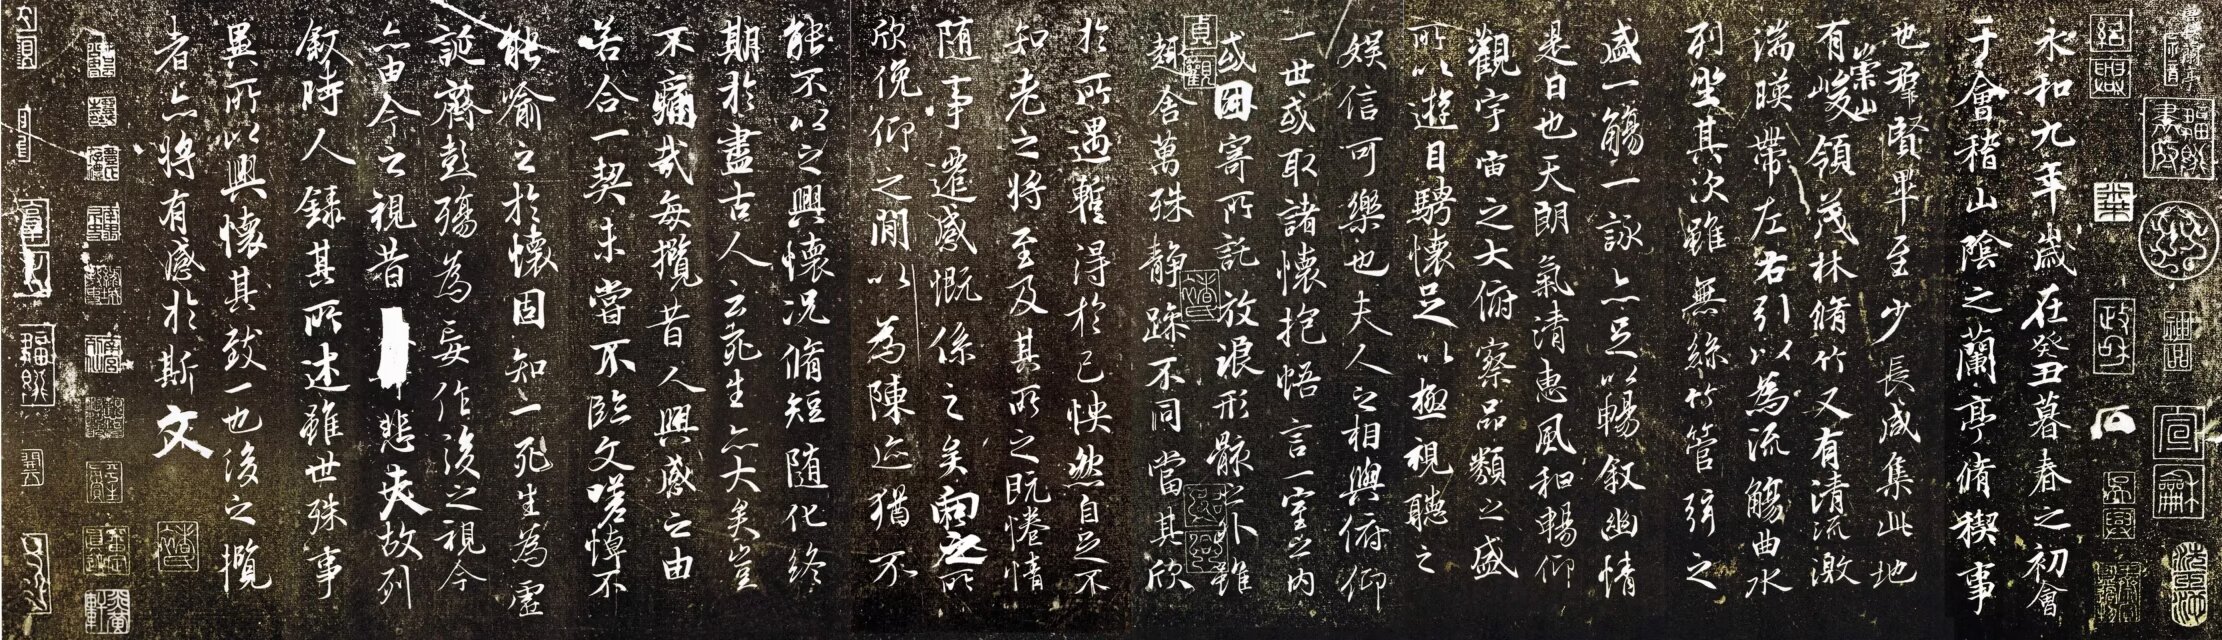 紹興
政和
宣龢
永和九年歲在癸丑暮春之初會
于會稽山陰之蘭亭脩稧事
也羣賢畢至少長咸集此地
有崇山峻領茂林脩竹又有清流激
湍暎帶左右引以為流觴曲水
列坐其次雖無絲竹管弦之
盛一觴一詠亦足以暢敘幽情
是日也天朗氣清惠風和暢仰
觀宇宙之大俯察品類之盛
所以遊目騁懷足以極視聽之
娛信可樂也夫人之相與俯仰
一世或取諸懷抱悟言一室之內
貞觀
或因寄所託放浪形骸之外雖
趣舍萬殊静躁不同當其欣
於所遇暫得於己怏然自足不
知老之將至及其所之既惓情
随事遷感慨係之矣向之所
欣俛仰之閒以為陳迹猶不
能不以之興懷况脩短随化終
期於盡古人云死生亦大矣豈
不痛哉每攬昔人興感之由
若合一契未嘗不臨文嗟悼不
能喻之於懷固知一死生為虛
誕齊彭殤為妄作後之視今
亦由今之視昔悲夫故列
敘時人錄其所述雖世殊事
異所以興懷其致一也後之攬
者亦將有感於斯文